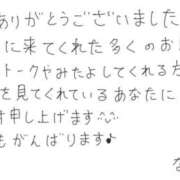 ありがとうございました
に来てくれた多くのお
トークやみたよしてくれる方
を見てくれているあなたに
申し上げます
もがんばります♪